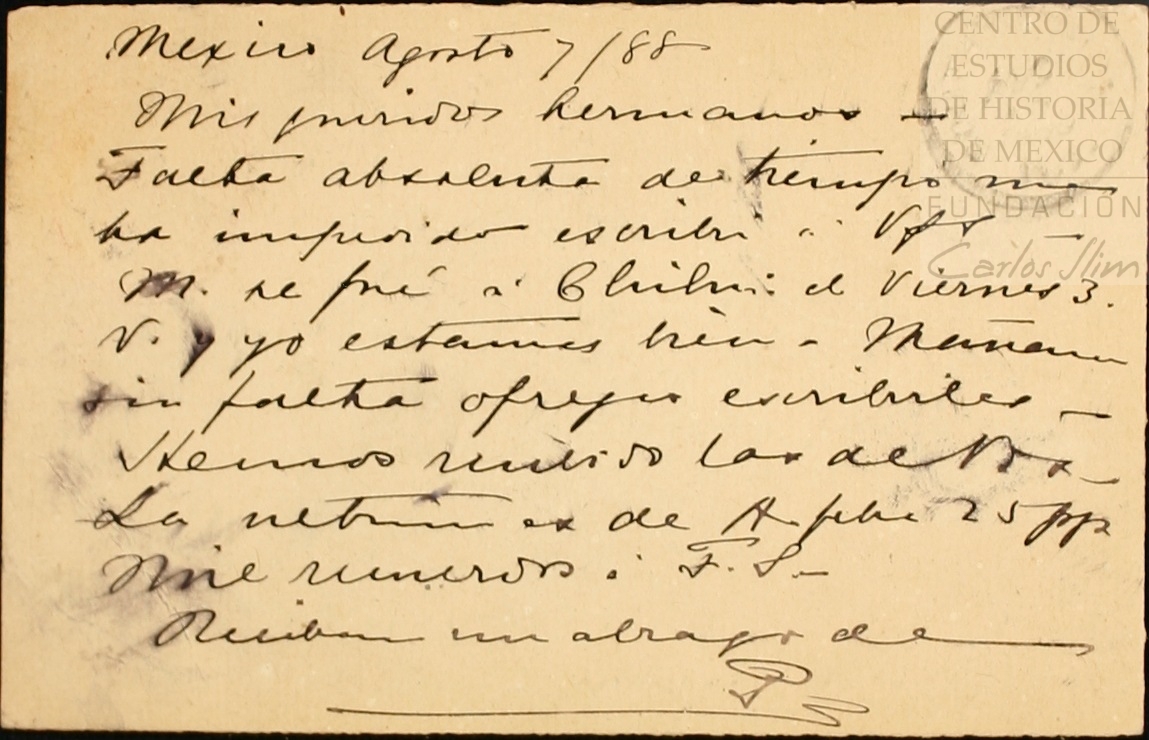 Mexico Agosto 7/88
Mis queridos hermanos —
Falta absoluta de tiempo me
ha impedido escribir á Vds —
M. se fué á Chihu: el Viernes 3.
V. y yo estamos bien – Mañana
sin falta ofrezco escribirles –
Hemos recibido las de Vds –
La última es de A. fcha 25 ppo
Mil recuerdos á F. S. –
Reciban un abrazo de
P
CENTRO DE
ESTUDIOS
DE HISTORIA
DE MEXICO
FUNDACIÓN
Carlos Slim